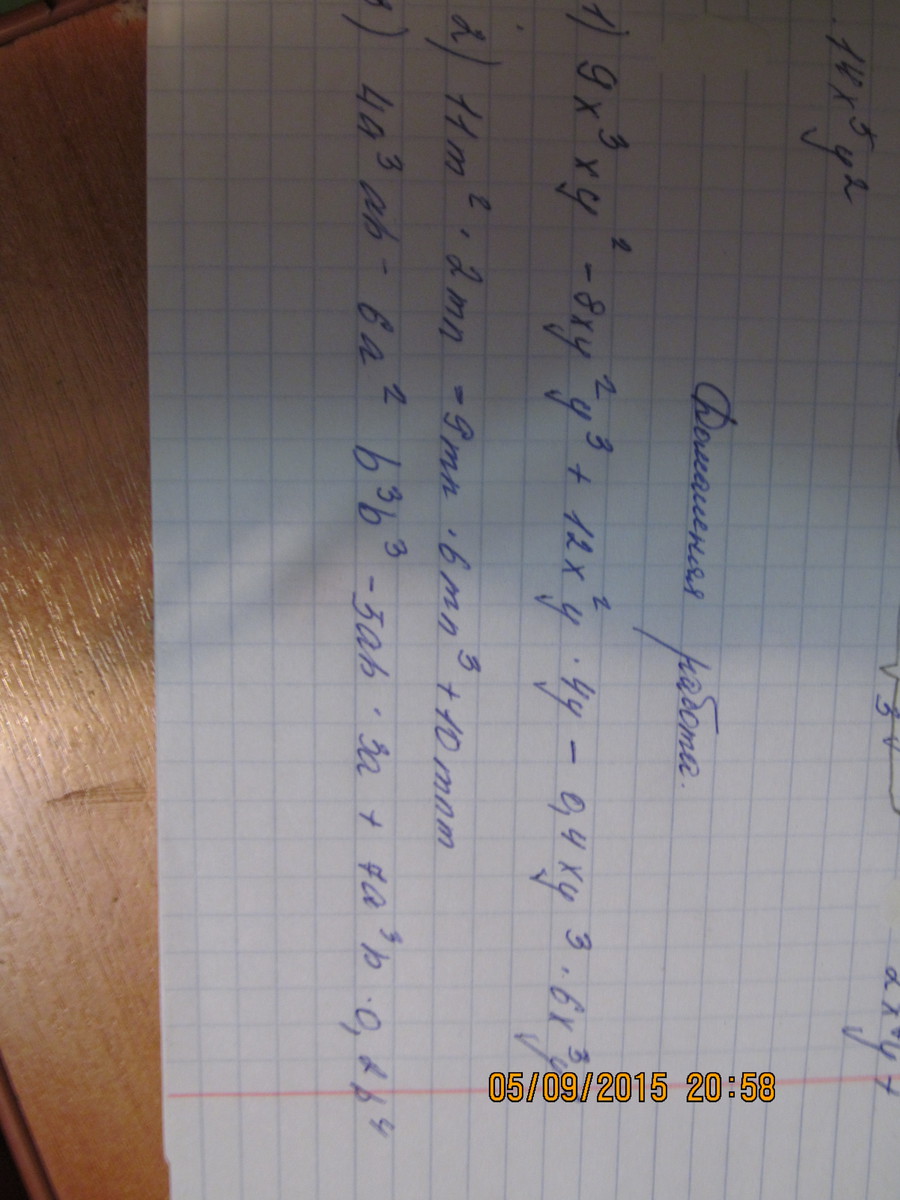 14x⁵y²
Домашняя работа.
1) 9x³xy² - 8xy²y³ + 12x²y · 4y - 0,4xy³ · 6x³y
2) 11m² · 2mn - 9mn · 6mn³ + 10mnm
) 4a³ab - 6a² b³b³ - 5ab · 3a + 7a³b · 0,2b⁴
05/09/2015 20:58